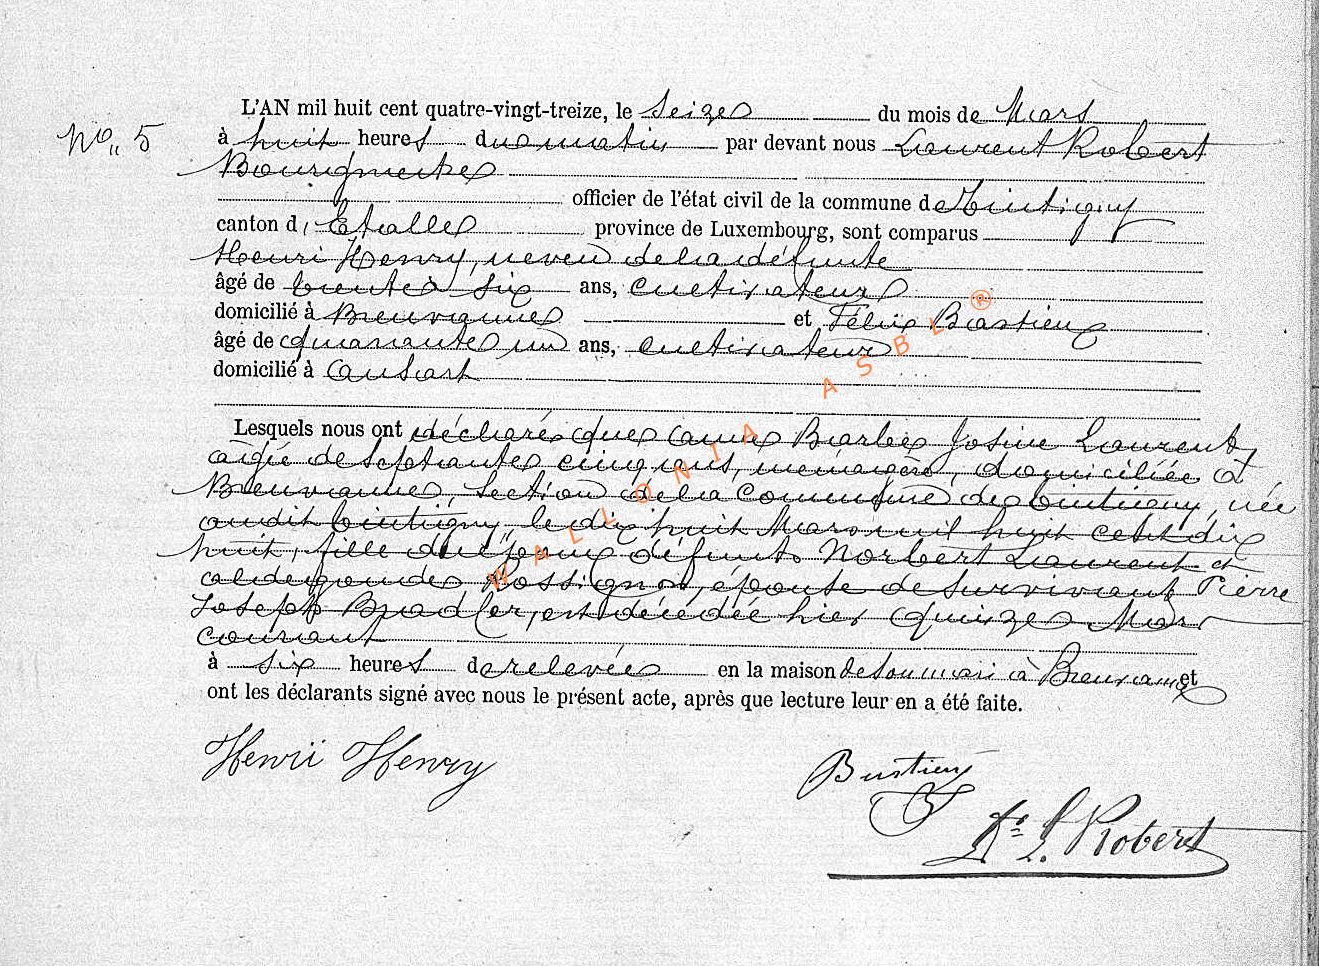 L'AN mil huit cent quatre-vingt-treize, le Seize du mois de Mars
No 5
à huit heures du matin par devant nous Laurent Robert
Bourgmestre
officier de l'état civil de la commune de Tintigny
canton d'Etalle province de Luxembourg, sont comparus
Henri Henry, neveu de la défunte
âgé de trente six ans, cultivateur
domicilié à Breuvanne et Félix Bastien
âgé de quarante un ans, cultivateur
domicilié à Ansart
Lesquels nous ont déclaré que Anne Barbe Josine Laurent,
agée de Septante cinq ans, menagère, domiciliée à
Breuvanne, Section de la Commune de Tintigny, née
audit Tintigny le dix huit Mars mil huit cent dix
huit, fille de défunts Norbert Laurent et
aldegonde Rossignon, épouse de Survivant Pierre
Joseph, est décédée hier quinze Mars
courant
à six heures de relevée en la maison de son mari à Breuvanne et
ont les déclarants signé avec nous le présent acte, après que lecture leur en a été faite.
Henri Henry
Bastien
F
L. Robert
WALLONIA ASBL ®